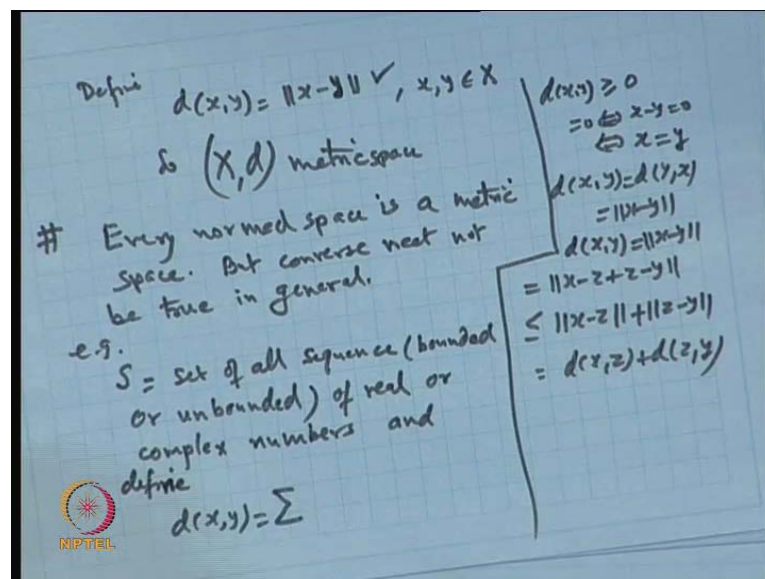 Define d(x,y) = ||x-y|| ✓, x,y ∈ X
So (X,d) metric space
# Every normed space is a metric
space. But converse neet not
be true in general.
e.g.
S = set of all sequence (bounded
or unbounded) of real or
complex numbers and
define
d(x,y) = Σ
d(x,y) ≥ 0
=0 ⇔ x-y=0
⇔ x=y
d(x,y)=d(y,x)
=||x-y||
d(x,y)=||x-y||
= ||x-z+z-y||
≤ ||x-z||+||z-y||
= d(x,z)+d(z,y)
NPTEL